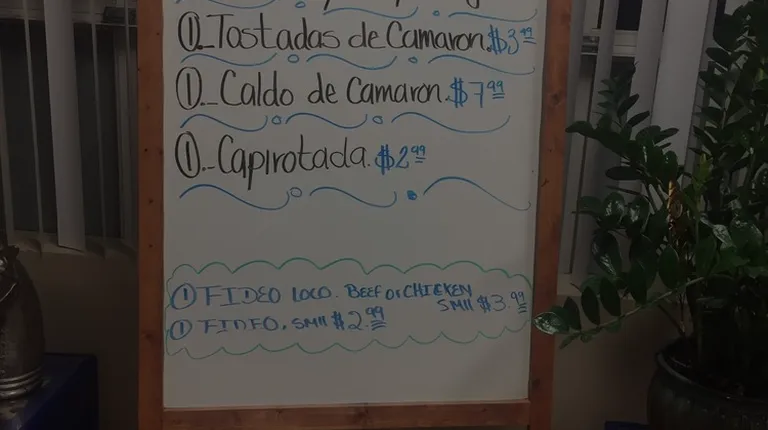 ①._Tostadas de Camaron.$3 99
①._Caldo de Camaron.$7 99
①._Capirotada.$2 99
① FIDEO LOCO. BEEF or CHICKEN
SMll $3.99
① FIDEO. SMll $2.99